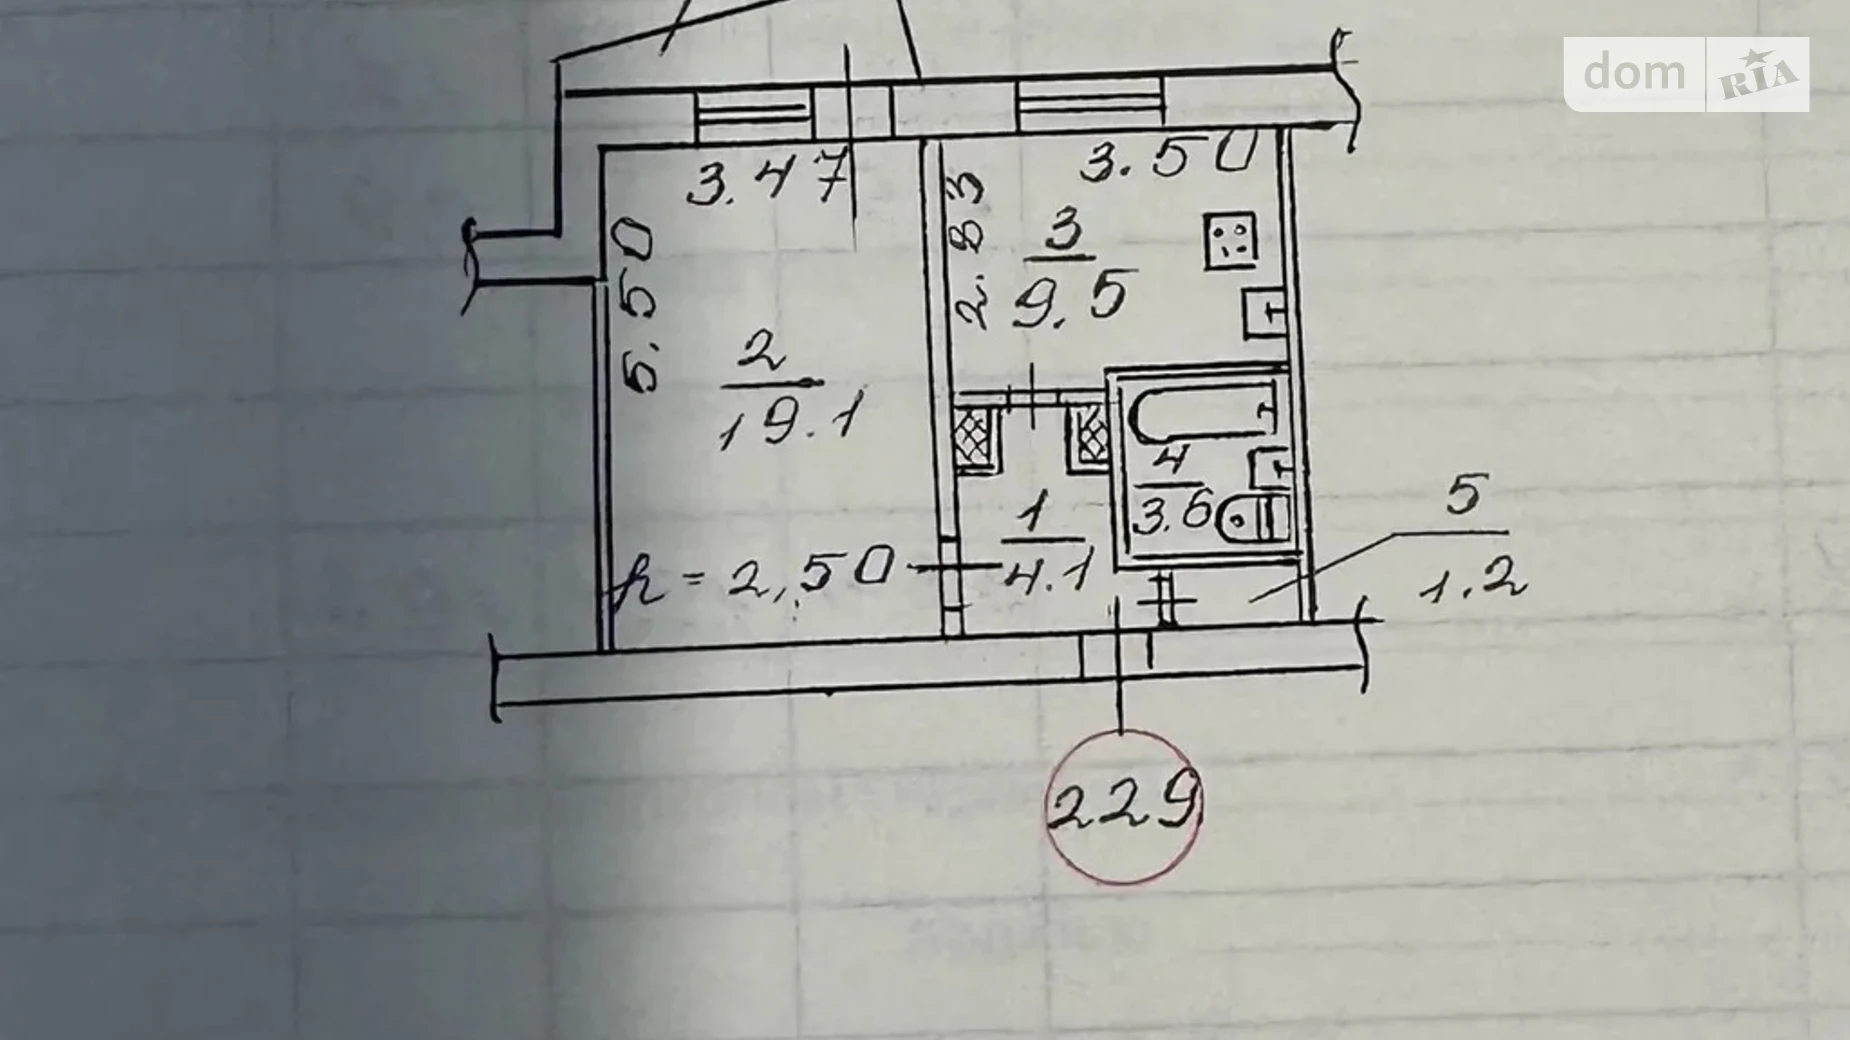 dom RIA
3.47
3.50
5.50
2.83
3
9.5
2
19.1
4
3.6
1
4.1
5
1.2
h = 2,50
229